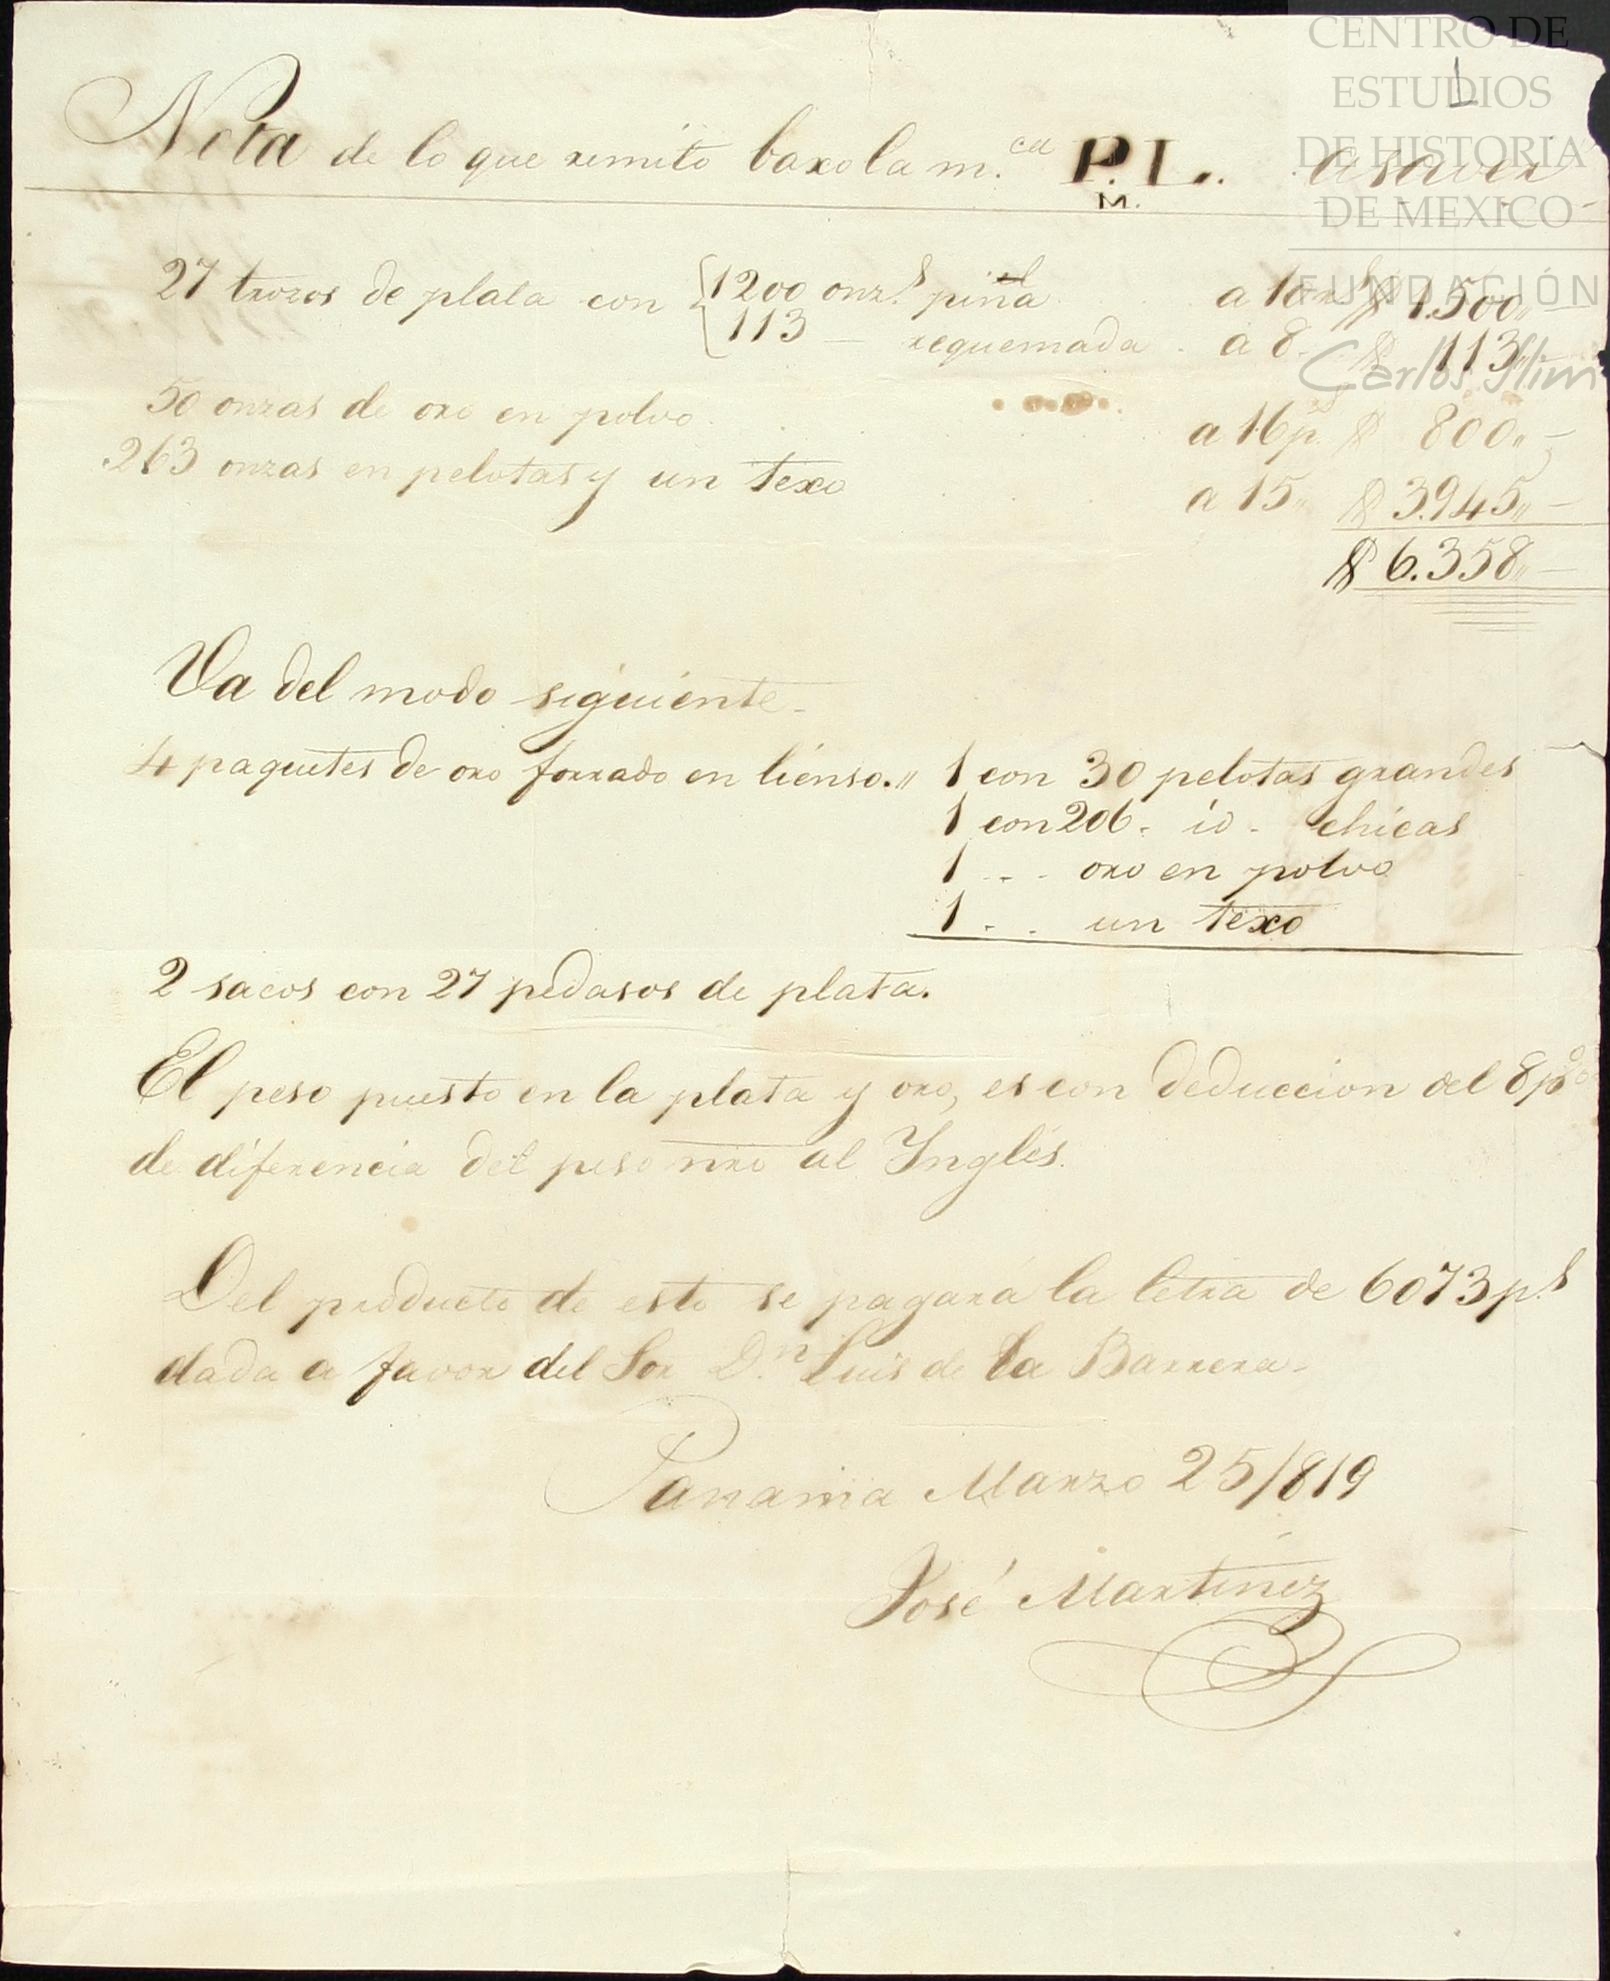 CENTRO DE
ESTUDIOS
DE HISTORIA
DE MEXICO
FUNDACIÓN
Carlos Slim
1
Nota de lo que remito baxo la m.ca P.L. asaver
M.
27 trozos de plata con { 1200 onz.s piña a 10 r.s $ 1.500,, —
113 — requemada . a 8 . $ 113,,
50 onzas de oro en polvo . a 16 p.s $ 800,, —
263 onzas en pelotas y un texo a 15,, $ 3.945,, —
$ 6.358,, —
Va del modo siguiente -
4 paquetes de oro forrado en lienso. ,, 1 con 30 pelotas grandes
1 con 206 - id - chicas
1 - - - oro en polvo
1 - . un texo
2 sacos con 27 pedasos de plata.
El peso puesto en la plata y oro, es con deduccion del 8 p%
de diferencia del peso nro al Ynglés.
Del producto de esto se pagará la letra de 6073 p.s
dada a favor del Sor D.n Luis de la Barrera -
Panama Marzo 25/819
José Martinez